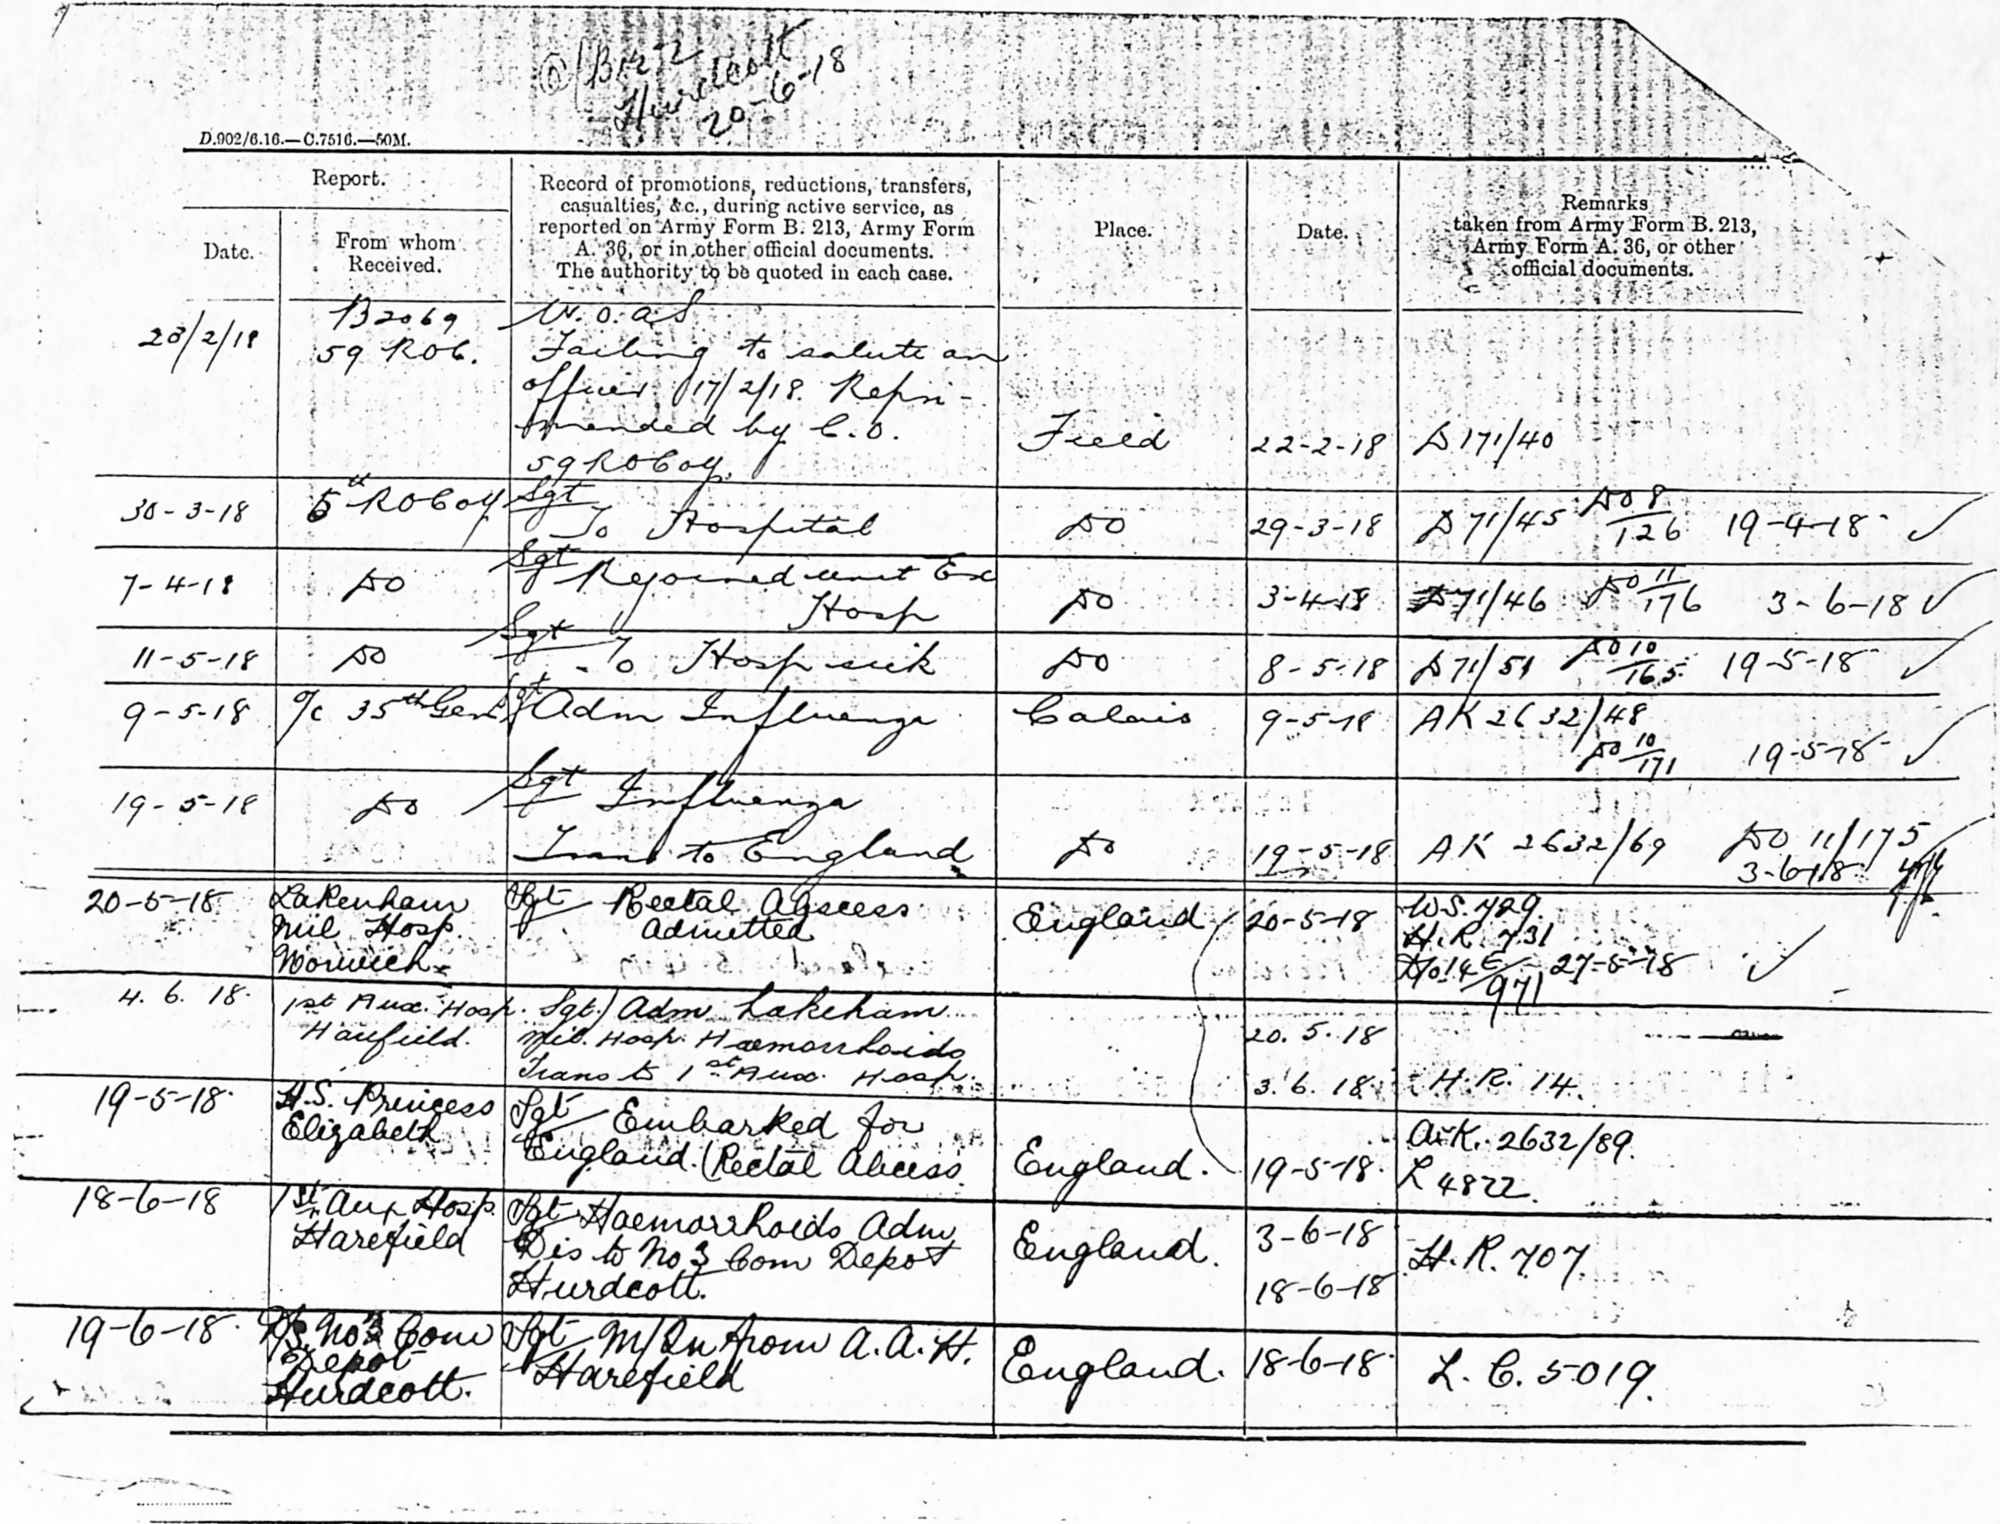 Hurdcott
20-6-18
D.902/6.16.—C.7516.—50M.
Report.
Date.
From whom Received.
Record of promotions, reductions, transfers,
casualties, &c., during active service, as
reported on Army Form B. 213, Army Form
A. 36, or in other official documents.
The authority to be quoted in each case.
Place.
Date.
Remarks
taken from Army Form B. 213,
Army Form A. 36, or other
official documents.
B2069
W.O.a.S
/2/18
59 ROC.
Failing to salute an
officer 17/2/18. Repri-
manded by C.O.
Field
22-2-18
D 171/40
59 ROCoy.
30-3-18
5th ROCoy
Sgt
To Hospital
DO
29-3-18
D 71/45
DO 8/126
19-4-18
7-4-18
DO
Sgt
Rejoined unit Ex
Hosp
DO
3-4-18
D71/46
DO 11/176
3-6-18
11-5-18
DO
Sgt
To Hosp sick
DO
8-5-18
D71/51
DO 10/165
19-5-18
9-5-18
O/c 35th Gen
Sgt
Adm Influenza
Calais
9-5-18
AK 2632/48
DO 10/171
19-5-18
19-5-18
DO
Sgt
Influenza
Trans to England
DO
19-5-18
AK 2632/69
DO 11/175
3-6-18
20-5-18
Lakenham
Mil Hosp.
Norwich
Sgt Rectal Abscess
Admitted
England
20-5-18
W.S. 729.
H.R. 731
27-5-18
971
4. 6. 18.
1st Aux. Hosp.
Harefield.
Sgt.) Adm Lakeham
Mil. Hosp. Haemorrhoids
Trans to 1st Aux. Hosp.
20. 5. 18
3. 6. 18.
H.R. 14.
19-5-18.
H.S. Princess
Elizabeth
Sgt Embarked for
England. (Rectal Abcess.
England.
19-5-18.
A.K. 2632/89.
L 4822.
18-6-18
1st Aux Hosp.
Harefield
Sgt Haemorrhoids Adm
Dis to No 3 Com Depot
Hurdcott.
England.
3-6-18
18-6-18
H.R. 707
19-6-18.
No 3 Com
Depot
Hurdcott.
Sgt M/In from A.A.H.
Harefield
England.
18-6-18.
L.C. 5019.